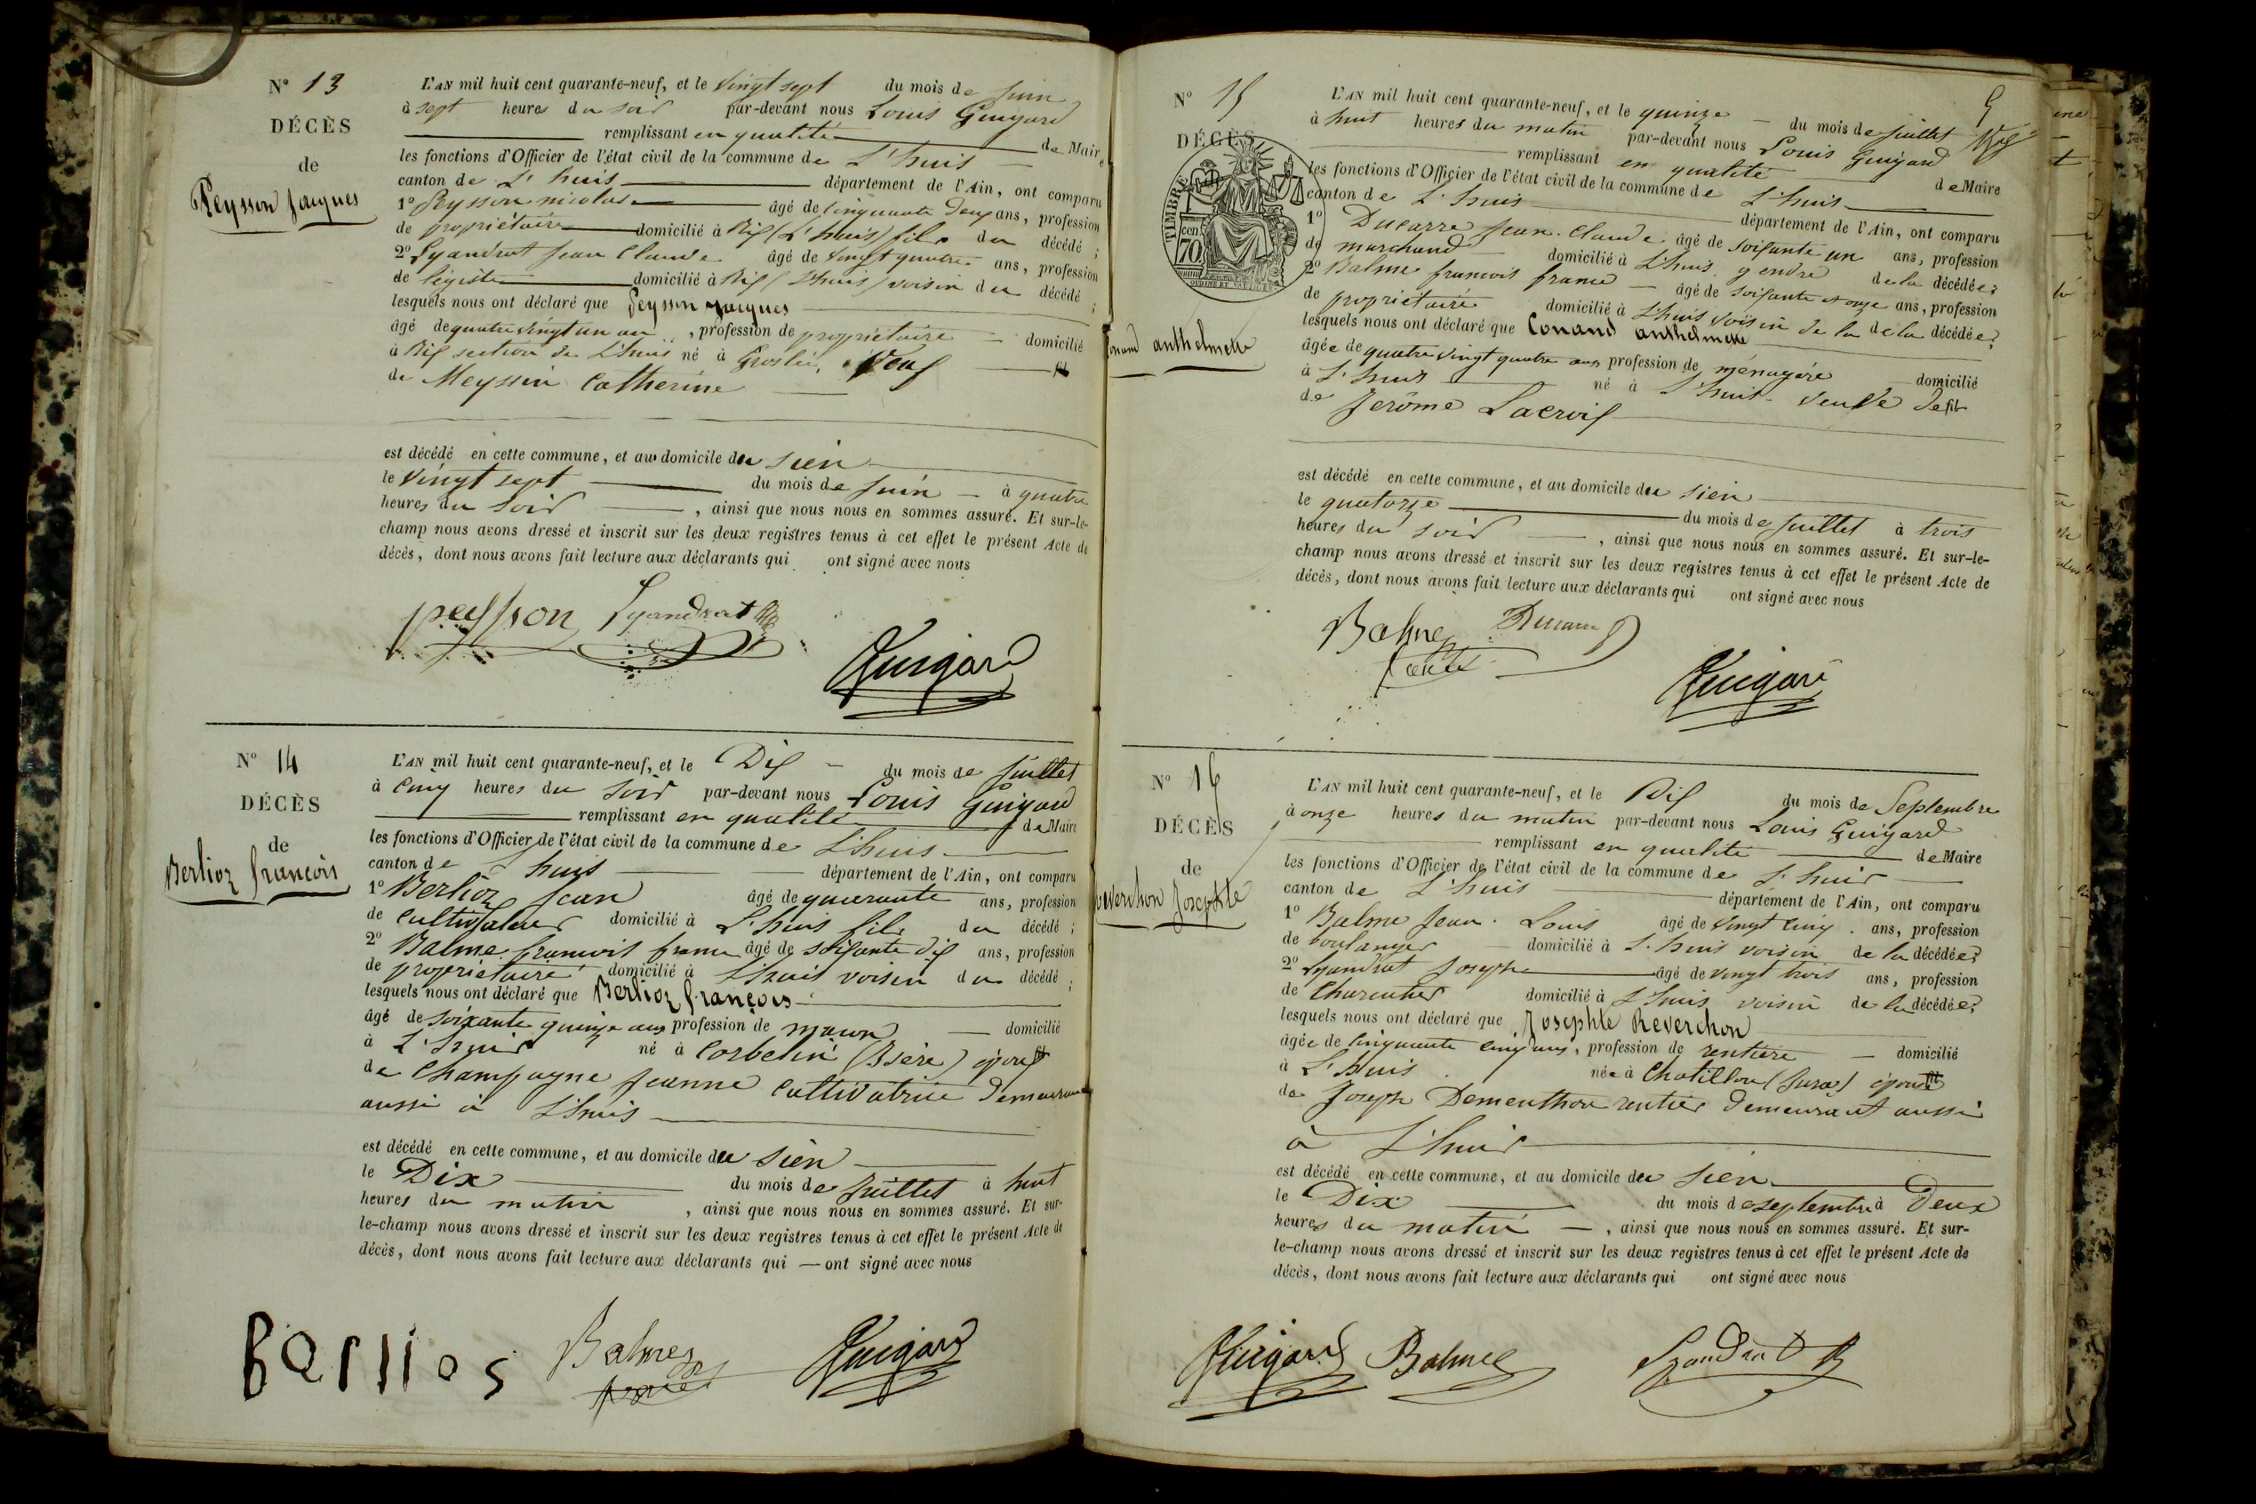 N° 13
DÉCÈS
de
Peysson Jacques
L'AN mil huit cent quarante-neuf, et le vingt sept du mois de juin
à sept heures du soir par-devant nous Louis Guigard
remplissant en qualité de Maire
les fonctions d'Officier de l'état civil de la commune de L'huis
canton de L'huis département de l'Ain, ont comparu
1° Peysson nicolas âgé de cinquante deux ans, profession
de propriétaire domicilié à Rix (L'huis) fils du décédé ;
2° Syandrat Jean Claude âgé de vingt quatre ans, profession
de domicilié à Rix (L'huis) voisin du décédé ;
lesquels nous ont déclaré que Peysson Jacques
âgé de quatre vingt un an, profession de propriétaire domicilié
à Rix section de L'huis né à Groslée, veuf
de Meyssin Catherine
est décédé en cette commune, et au domicile du sien
le vingt sept du mois de juin à quatre
heures du soir, ainsi que nous nous en sommes assuré. Et sur-le-
champ nous avons dressé et inscrit sur les deux registres tenus à cet effet le présent Acte de
décès, dont nous avons fait lecture aux déclarants qui ont signé avec nous
peysson Syandrat
Guigard
N° 14
DÉCÈS
de
Berlioz françois
L'AN mil huit cent quarante-neuf, et le Dix du mois de juillet
à cinq heures du soir par-devant nous Louis Guigard
remplissant en qualité de Maire
les fonctions d'Officier de l'état civil de la commune de L'huis
canton de L'huis département de l'Ain, ont comparu
1° Berlioz Jean âgé de quarante ans, profession
de cultivateur domicilié à L'huis fils du décédé ;
2° Balme françois france âgé de soixante dix ans, profession
de propriétaire domicilié à L'huis voisin du décédé ;
lesquels nous ont déclaré que Berlioz françois
âgé de soixante quinze ans profession de maçon domicilié
à L'huis né à Corbelin (Isère) époux
de Champagne Jeanne cultivatrice demeurant
aussi à L'huis
est décédé en cette commune, et au domicile du sien
le Dix du mois de juillet à huit
heures du matin, ainsi que nous nous en sommes assuré. Et sur-
le-champ nous avons dressé et inscrit sur les deux registres tenus à cet effet le présent Acte de
décès, dont nous avons fait lecture aux déclarants qui — ont signé avec nous
Berlios Balme Guigard
N° 15
DÉCÈS
TIMBRE
70
Conand anthelmette
L'AN mil huit cent quarante-neuf, et le quinze du mois de juillet
à huit heures du matin par-devant nous Louis Guigard
remplissant en qualité de Maire
les fonctions d'Officier de l'état civil de la commune de L'huis
canton de L'huis département de l'Ain, ont comparu
1° Ducarre Jean-Claude âgé de soixante un ans, profession
de marchand domicilié à L'huis, gendre de la décédée ;
2° Balme francois france âgé de soixante et onze ans, profession
de propriétaire domicilié à L'huis voisin de la de la décédée ;
lesquels nous ont déclaré que Conand anthelmette
âgée de quatre vingt quatre ans profession de ménagère domicilié
à L'huis né à L'huis veuve de
de Jerôme Lacroix
est décédé en cette commune, et au domicile du sien
le quatorze du mois de juillet à trois
heures du soir, ainsi que nous nous en sommes assuré. Et sur-le-
champ nous avons dressé et inscrit sur les deux registres tenus à cet effet le présent Acte de
décès, dont nous avons fait lecture aux déclarants qui ont signé avec nous
Balme Ducarre
Guigard
N° 16
DÉCÈS
de
Reverchon Josephte
L'AN mil huit cent quarante-neuf, et le Dix du mois de Septembre
à onze heures du matin par-devant nous Louis Guigard
remplissant en qualité de Maire
les fonctions d'Officier de l'état civil de la commune de L'huis
canton de L'huis département de l'Ain, ont comparu
1° Balme Jean-Louis âgé de vingt cinq ans, profession
de boulanger domicilié à L'huis voisin de la décédée ;
2° Syandrat Joseph âgé de vingt trois ans, profession
de Charcutier domicilié à L'huis voisin de la décédée ;
lesquels nous ont déclaré que Josephte Reverchon
âgée de cinquante cinq ans, profession de rentière domicilié
à L'huis née à Chatillon (Jura) épouse
de Joseph Dementhon rentier demeurant aussi
à L'huis
est décédé en cette commune, et au domicile du sien
le Dix du mois de septembre à Deux
heures du matin, ainsi que nous nous en sommes assuré. Et sur-
le-champ nous avons dressé et inscrit sur les deux registres tenus à cet effet le présent Acte de
décès, dont nous avons fait lecture aux déclarants qui ont signé avec nous
Guigard Balme Syandrat